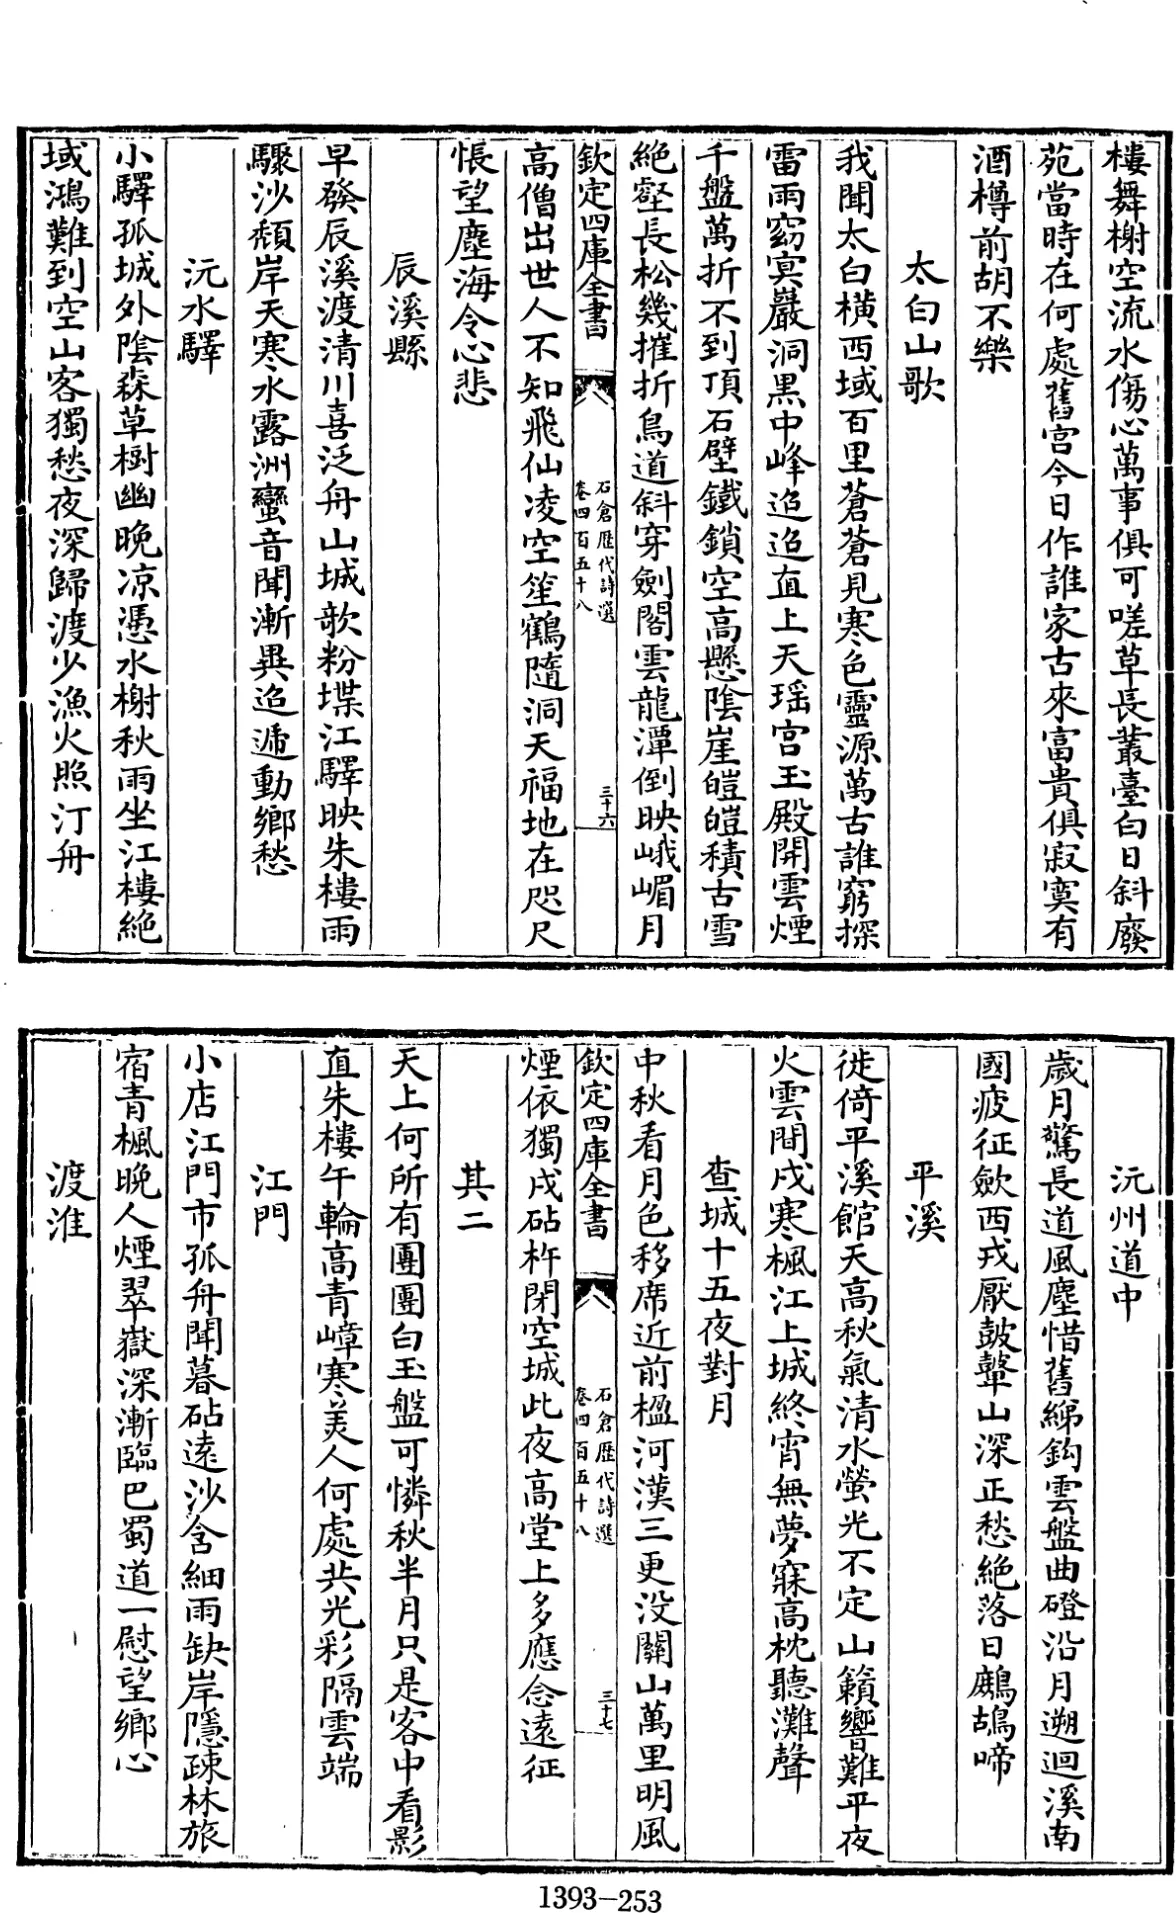 樓舞榭空流水傷心萬事俱可嗟草長叢臺白日斜廢
苑當時在何處舊宮今日作誰家古來富貴俱寂寞有
酒樽前胡不樂
太白山歌
我聞太白橫西域百里蒼蒼見寒色靈源萬古誰窮探
雷雨窈冥巖洞黒中峰迢迢直上天瑶宫玉殿開雲煙
千盤萬折不到頂石壁鐵鎖空高懸陰崖皚皚積古雪
絶壑長松幾摧折鳥道斜穿劍閣雲龍潭倒映峨嵋月
欽定四庫全書
石倉歴代詩選
卷四百五十八
三十六
高僧出世人不知飛仙凌空笙鶴隨洞天福地在咫尺
悵望塵海令心悲
辰溪縣
早發辰溪渡清川喜泛舟山城欹粉堞江驛映朱樓雨
驟沙頽岸天寒水露洲蠻音聞漸異迢遞動鄉愁
沅水驛
小驛孤城外陰森草樹幽晚凉憑水榭秋雨坐江樓絶
域鴻難到空山客獨愁夜深歸渡少漁火照汀舟
沅州道中
歲月驚長道風塵惜舊綈鈎雲盤曲磴沿月遡迴溪南
國疲征歛西戎厭鼓鼙山深正愁絶落日鷓鴣啼
平溪
徙倚平溪館天高秋氣清水螢光不定山籟響難平夜
火雲間戍寒楓江上城終宵無夢寐高枕聽灘聲
查城十五夜對月
中秋看月色移席近前楹河漢三更没關山萬里明風
欽定四庫全書
石倉歴代詩選
卷四百五十八
三十七
煙依獨戍砧杵閉空城此夜高堂上多應念遠征
其二
天上何所有團團白玉盤可憐秋半月只是客中看影
直朱樓午輪高青嶂寒美人何處共光彩隔雲端
江門
小店江門市孤舟聞暮砧遠沙含細雨缺岸隱疎林旅
宿青楓晚人煙翠嶽深漸臨巴蜀道一慰望鄉心
渡淮
1393-253